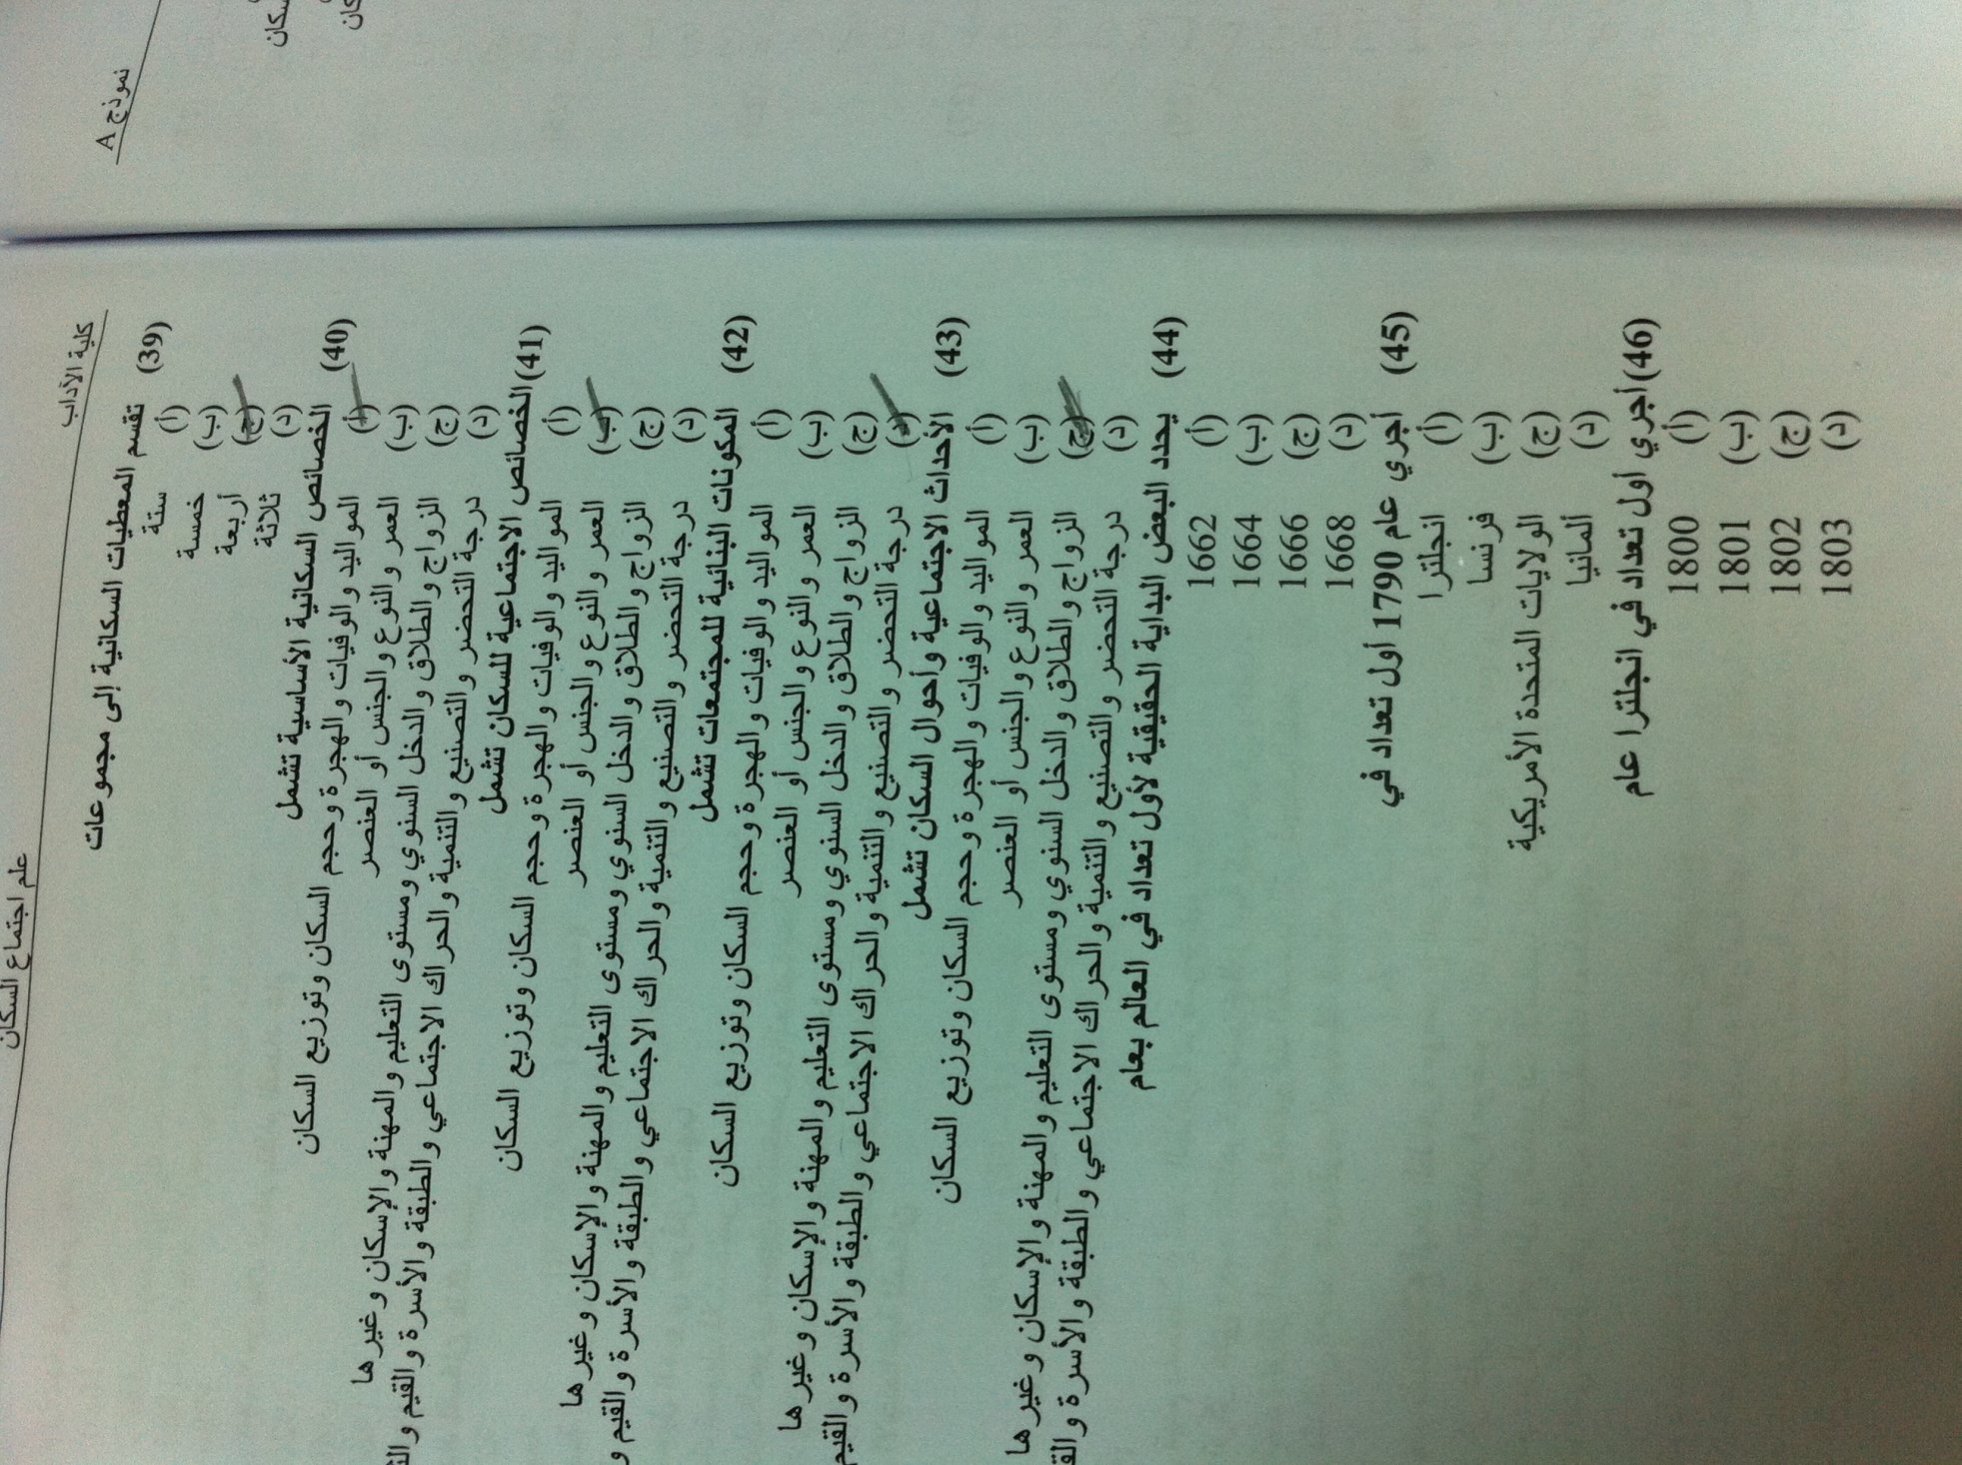 علم اجتماع السكان
كلية الآداب
نموذج A
(39) تقسم المعطيات السكانية إلى مجموعات
(أ) ستة
(ب) خمسة
(ج) أربعة
(د) ثلاثة
(40) الخصائص السكانية الأساسية تشمل
(أ) المواليد والوفيات والهجرة وحجم السكان وتوزيع السكان
(ب) العمر والنوع والجنس أو العنصر
(ج) الزواج والطلاق والدخل السنوي ومستوى التعليم والمهنة والإسكان وغيرها
(د) درجة التحضر والتصنيع والتنمية والحراك الاجتماعي والطبقة والأسرة والقيم
(41) الخصائص الاجتماعية للسكان تشمل
(أ) المواليد والوفيات والهجرة وحجم السكان وتوزيع السكان
(ب) العمر والنوع والجنس أو العنصر
(ج) الزواج والطلاق والدخل السنوي ومستوى التعليم والمهنة والإسكان وغيرها
(د) درجة التحضر والتصنيع والتنمية والحراك الاجتماعي والطبقة والأسرة والقيم و
(42) المكونات البنائية للمجتمعات تشمل
(أ) المواليد والوفيات والهجرة وحجم السكان وتوزيع السكان
(ب) العمر والنوع والجنس أو العنصر
(ج) الزواج والطلاق والدخل السنوي ومستوى التعليم والمهنة والإسكان وغيرها
(د) درجة التحضر والتصنيع والتنمية والحراك الاجتماعي والطبقة والأسرة والقيم
(43) الأحداث الاجتماعية وأحوال السكان تشمل
(أ) المواليد والوفيات والهجرة وحجم السكان وتوزيع السكان
(ب) العمر والنوع والجنس أو العنصر
(ج) الزواج والطلاق والدخل السنوي ومستوى التعليم والمهنة والإسكان وغيرها
(د) درجة التحضر والتصنيع والتنمية والحراك الاجتماعي والطبقة والأسرة
(44) يحدد البعض البداية الحقيقية لأول تعداد في العالم بعام
(أ) 1662
(ب) 1664
(ج) 1666
(د) 1668
(45) أجري عام 1790 أول تعداد في
(أ) انجلترا
(ب) فرنسا
(ج) الولايات المتحدة الأمريكية
(د) ألمانيا
(46) أجري أول تعداد في انجلترا عام
(أ) 1800
(ب) 1801
(ج) 1802
(د) 1803